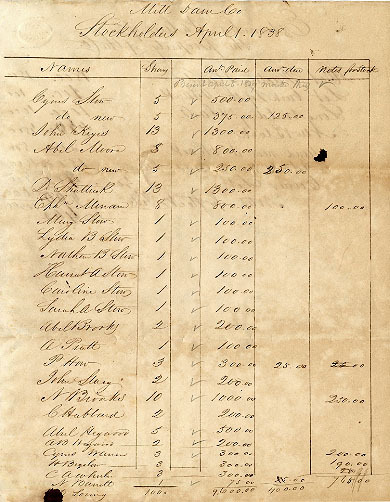 Mill Dam Co
Stockholders April 1. 1838
Names Shares Amt. Paid Amt. Due Notes
Cyrus Stow 5 500.00
do new 5 375.00 125.00
John Keyes 13 1300.00
Abel Moore 8 800.00
do new 5 250.00 250.00
D. Shattuck 13 1300.00
Ephm Meriam 8 800.00 100.00
Mary Stow 1 100.00
Lydia B Stow 1 100.00
Nathan B Stow 1 100.00
Harriet A Stow 1 100.00
Caroline Stow 1 100.00
Sarah A Stow 1 100.00
Abel Brooks 2 200.00
A Pratt 1 100.00
P How 3 300.00 25.00
John Stacy 2 200.00
N Brooks 10 1000.00 250.00
C Hubbard 2 200.00
Abel Heywood 5 500.00
2 200.00
Cyrus Warren 3 300.00 200.00
3 300.00 190.00
3 300.00
75.00
9,600.00 400.00 765.00